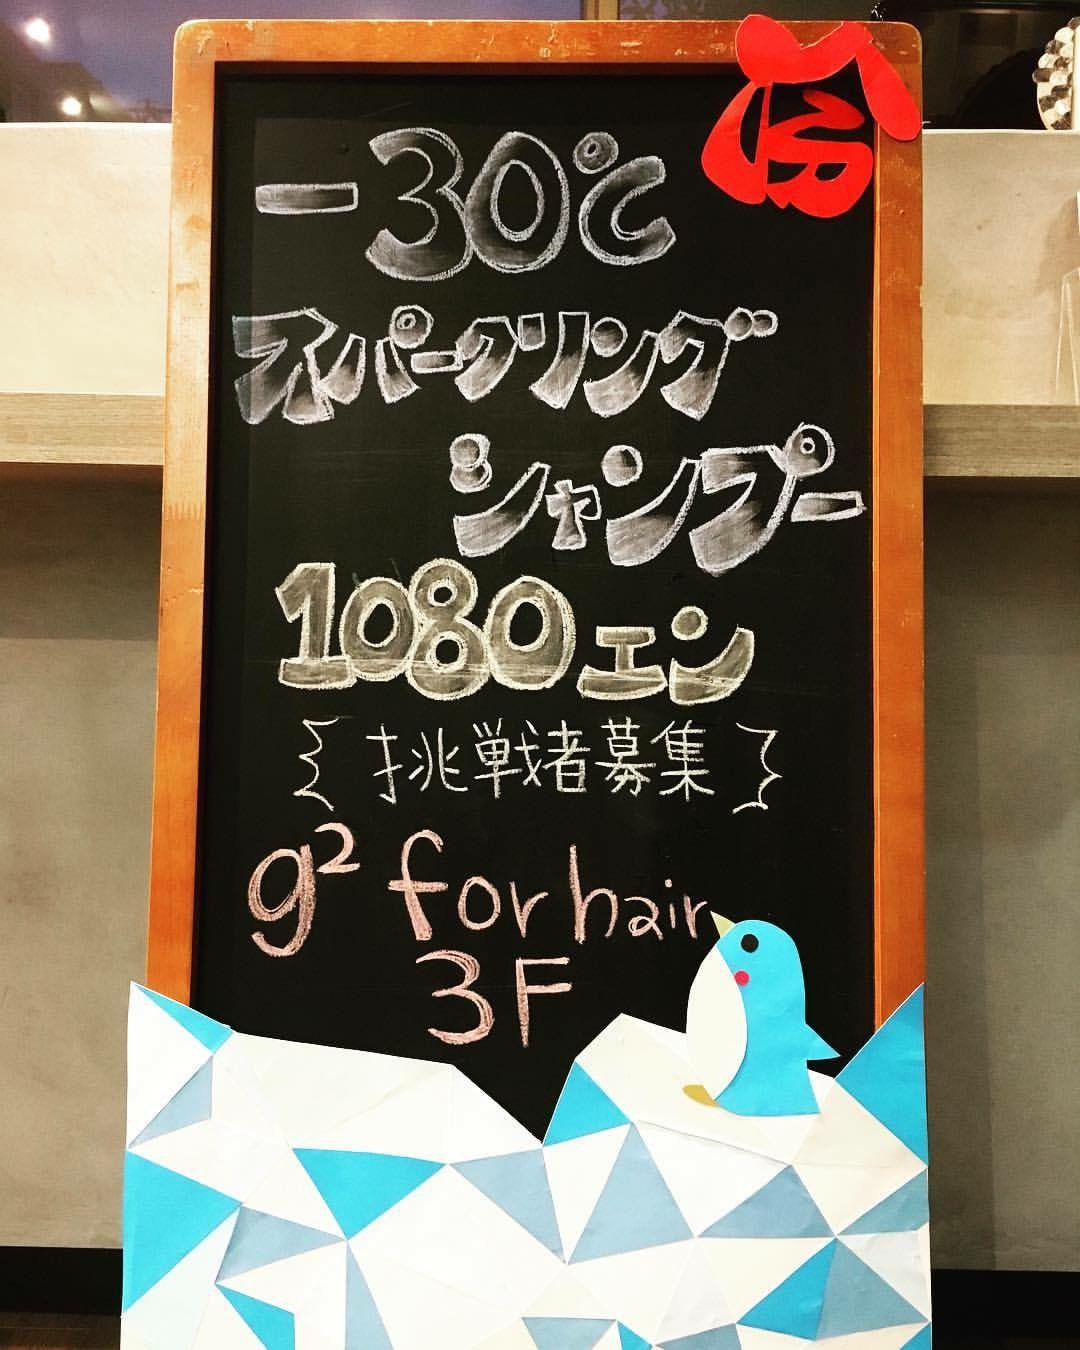 -30℃
スパークリング
シャンプー
1080エン
挑戦者募集
g² for hair
3F